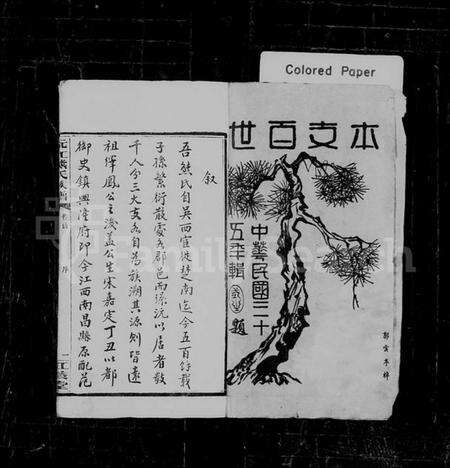 Colored Paper
本支百世
中華民國三十
五年輯
題
叙
吾熊氏自吳西官徙楚南迄今五百餘載
子孫繁衍散處各郡邑而環沅以居者數
千人分三大支各自爲族溯其源則皆遠
祖繹鳳公之後蓋公生宋嘉定丁丑以都
御史鎮興隆府即今江西南昌縣原配范
FamilySearch